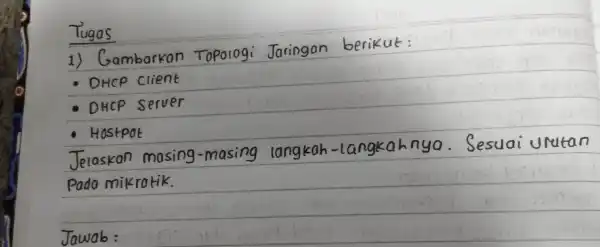 Tugas
1) Gambarkan Topologi Jaringan berikut :
• DHCP Client
• DHCP Server
• Hostpot
Jelaskan masing-masing langkah-langkahnya. Sesuai urutan
Pada mikrotik.
Jawab :